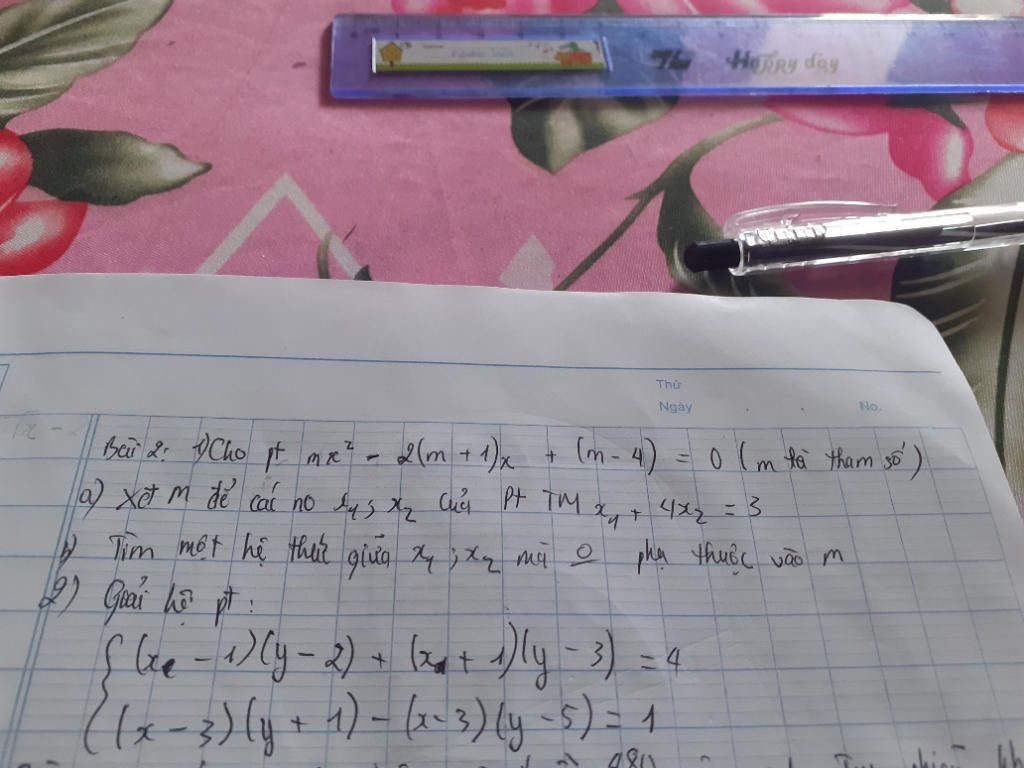 Happy day
Thứ
Ngày . . No.
Bài 2: 1) Cho pt mx² - 2(m + 1)x + (m - 4) = 0 (m là tham số)
a) Xét m để các no x₁; x₂ của Pt TM x₁ + 4x₂ = 3
b) Tìm một hệ thức giữa x₁; x₂ mà O phụ thuộc vào m
2) Giải hệ pt:
{(x - 1)(y - 2) + (x + 1)(y - 3) = 4
(x - 3)(y + 1) - (x - 3)(y - 5) = 1